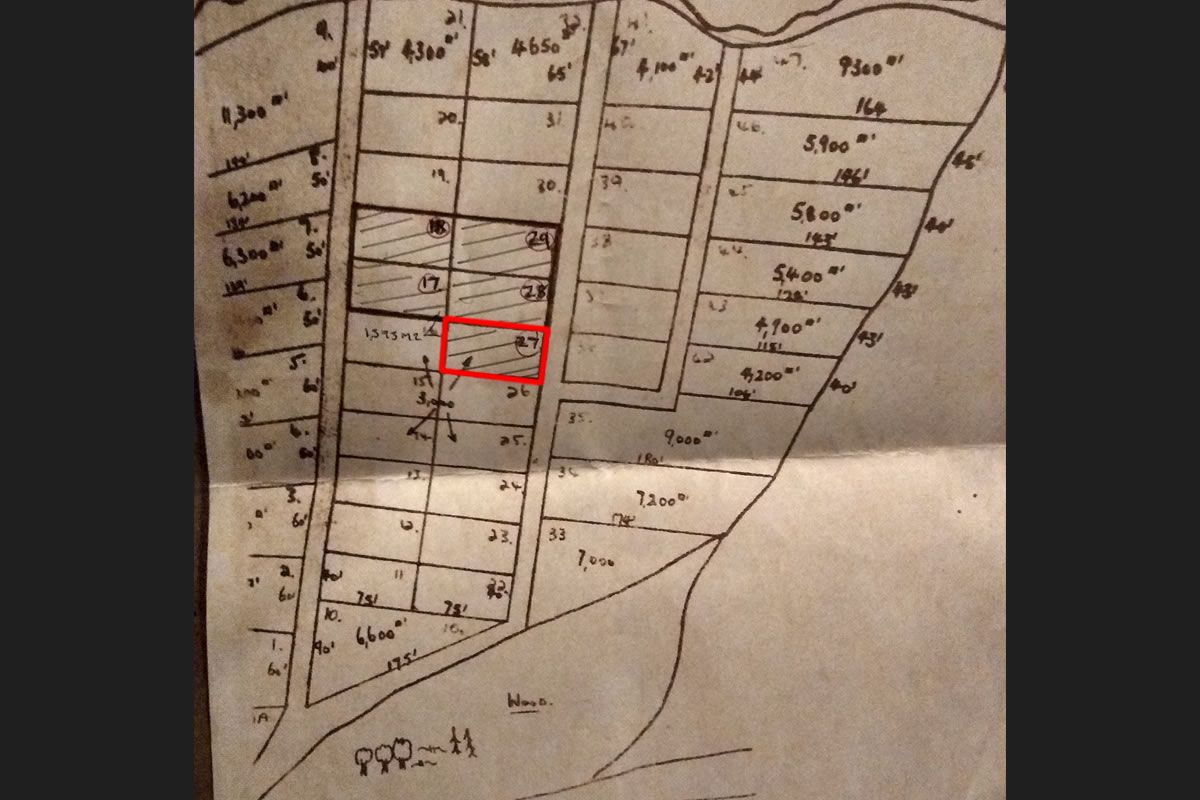 9.
100'
11,300 □'
8.
50'
6,200 □'
50'
6,300 □'
6.
50'
5.
60'
3.
60'
2.
60'
1.
60'
1A
21.
57'
4,300 □'
20.
19.
18
17
1,393 M2
15
3,000
13.
12.
11
40'
75'
75'
10.
10.
90'
6,600 □'
175'
32.
58'
4650 □'
65'
31.
30.
29
28
27
26
25.
24.
23.
22
41.
67'
4,100 □'
42'
40.
39.
38
47.
44'
9300 □'
164
46.
5,900 □'
146'
45'
45
5,800 □'
40'
44.
5,400 □'
43'
43
4,900 □'
115'
43'
42
4,200 □'
40'
35.
9,000 □'
180'
34
7,200 □'
174'
33
7,000
Wood.